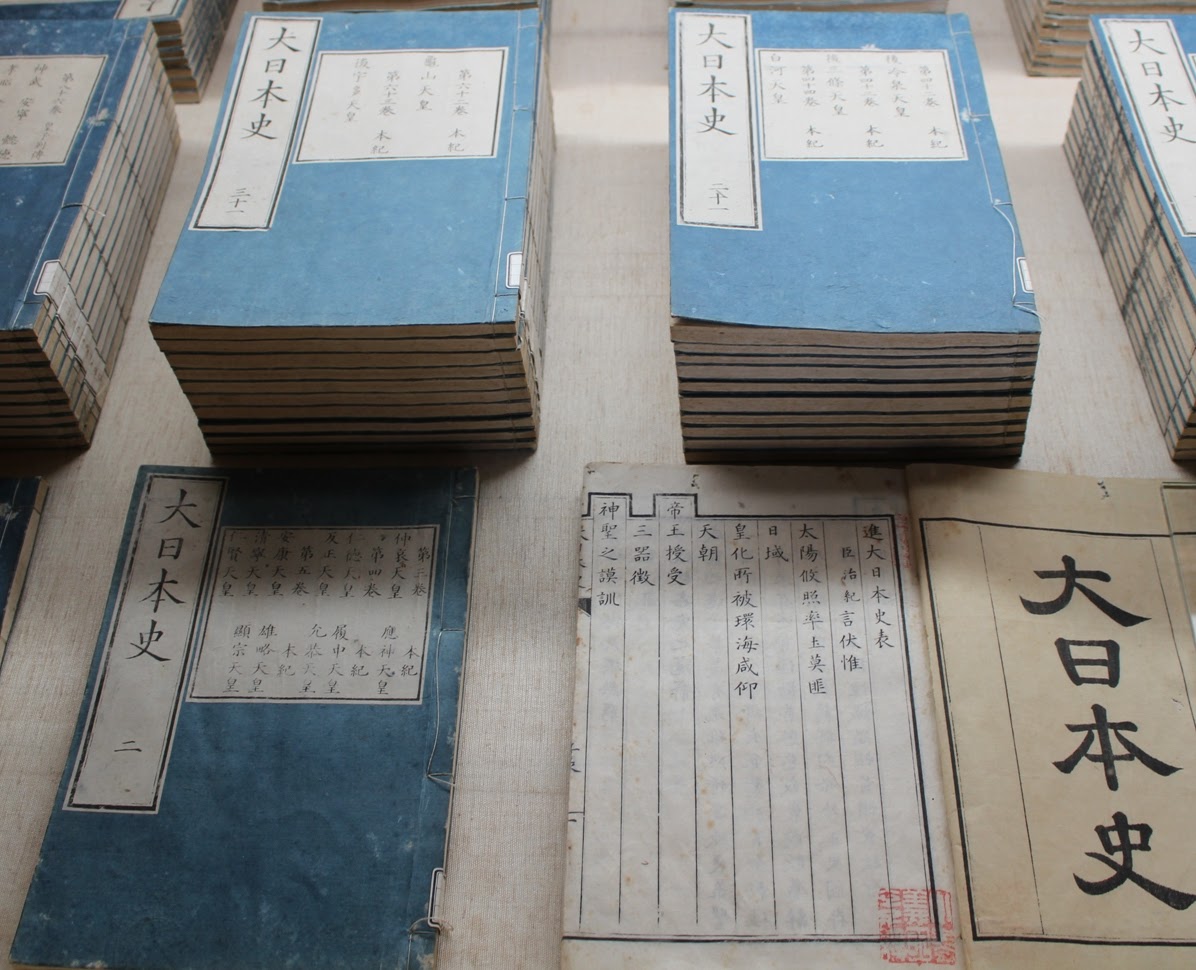 大日本史
三十一
第六十二卷 本紀
龜山天皇
第六十三卷 本紀
後宇多天皇
大日本史
二十一
第四十二卷 本紀
後冷泉天皇
第四十三卷 本紀
後三條天皇
第四十四卷 本紀
白河天皇
大日本史
神武 安寧
懿德
大日本史
二
第三卷 本紀
仲哀天皇 應神天皇
第四卷 本紀
仁德天皇 履中天皇
反正天皇 允恭天皇
第五卷 本紀
安康天皇 雄略天皇
清寧天皇 顯宗天皇
仁賢天皇
大日本史
進大日本史表
臣治紀言伏惟
太陽攸照率土莫匪
日域
皇化所被環海咸仰
天朝
帝王授受
三器徵
神聖之謨訓